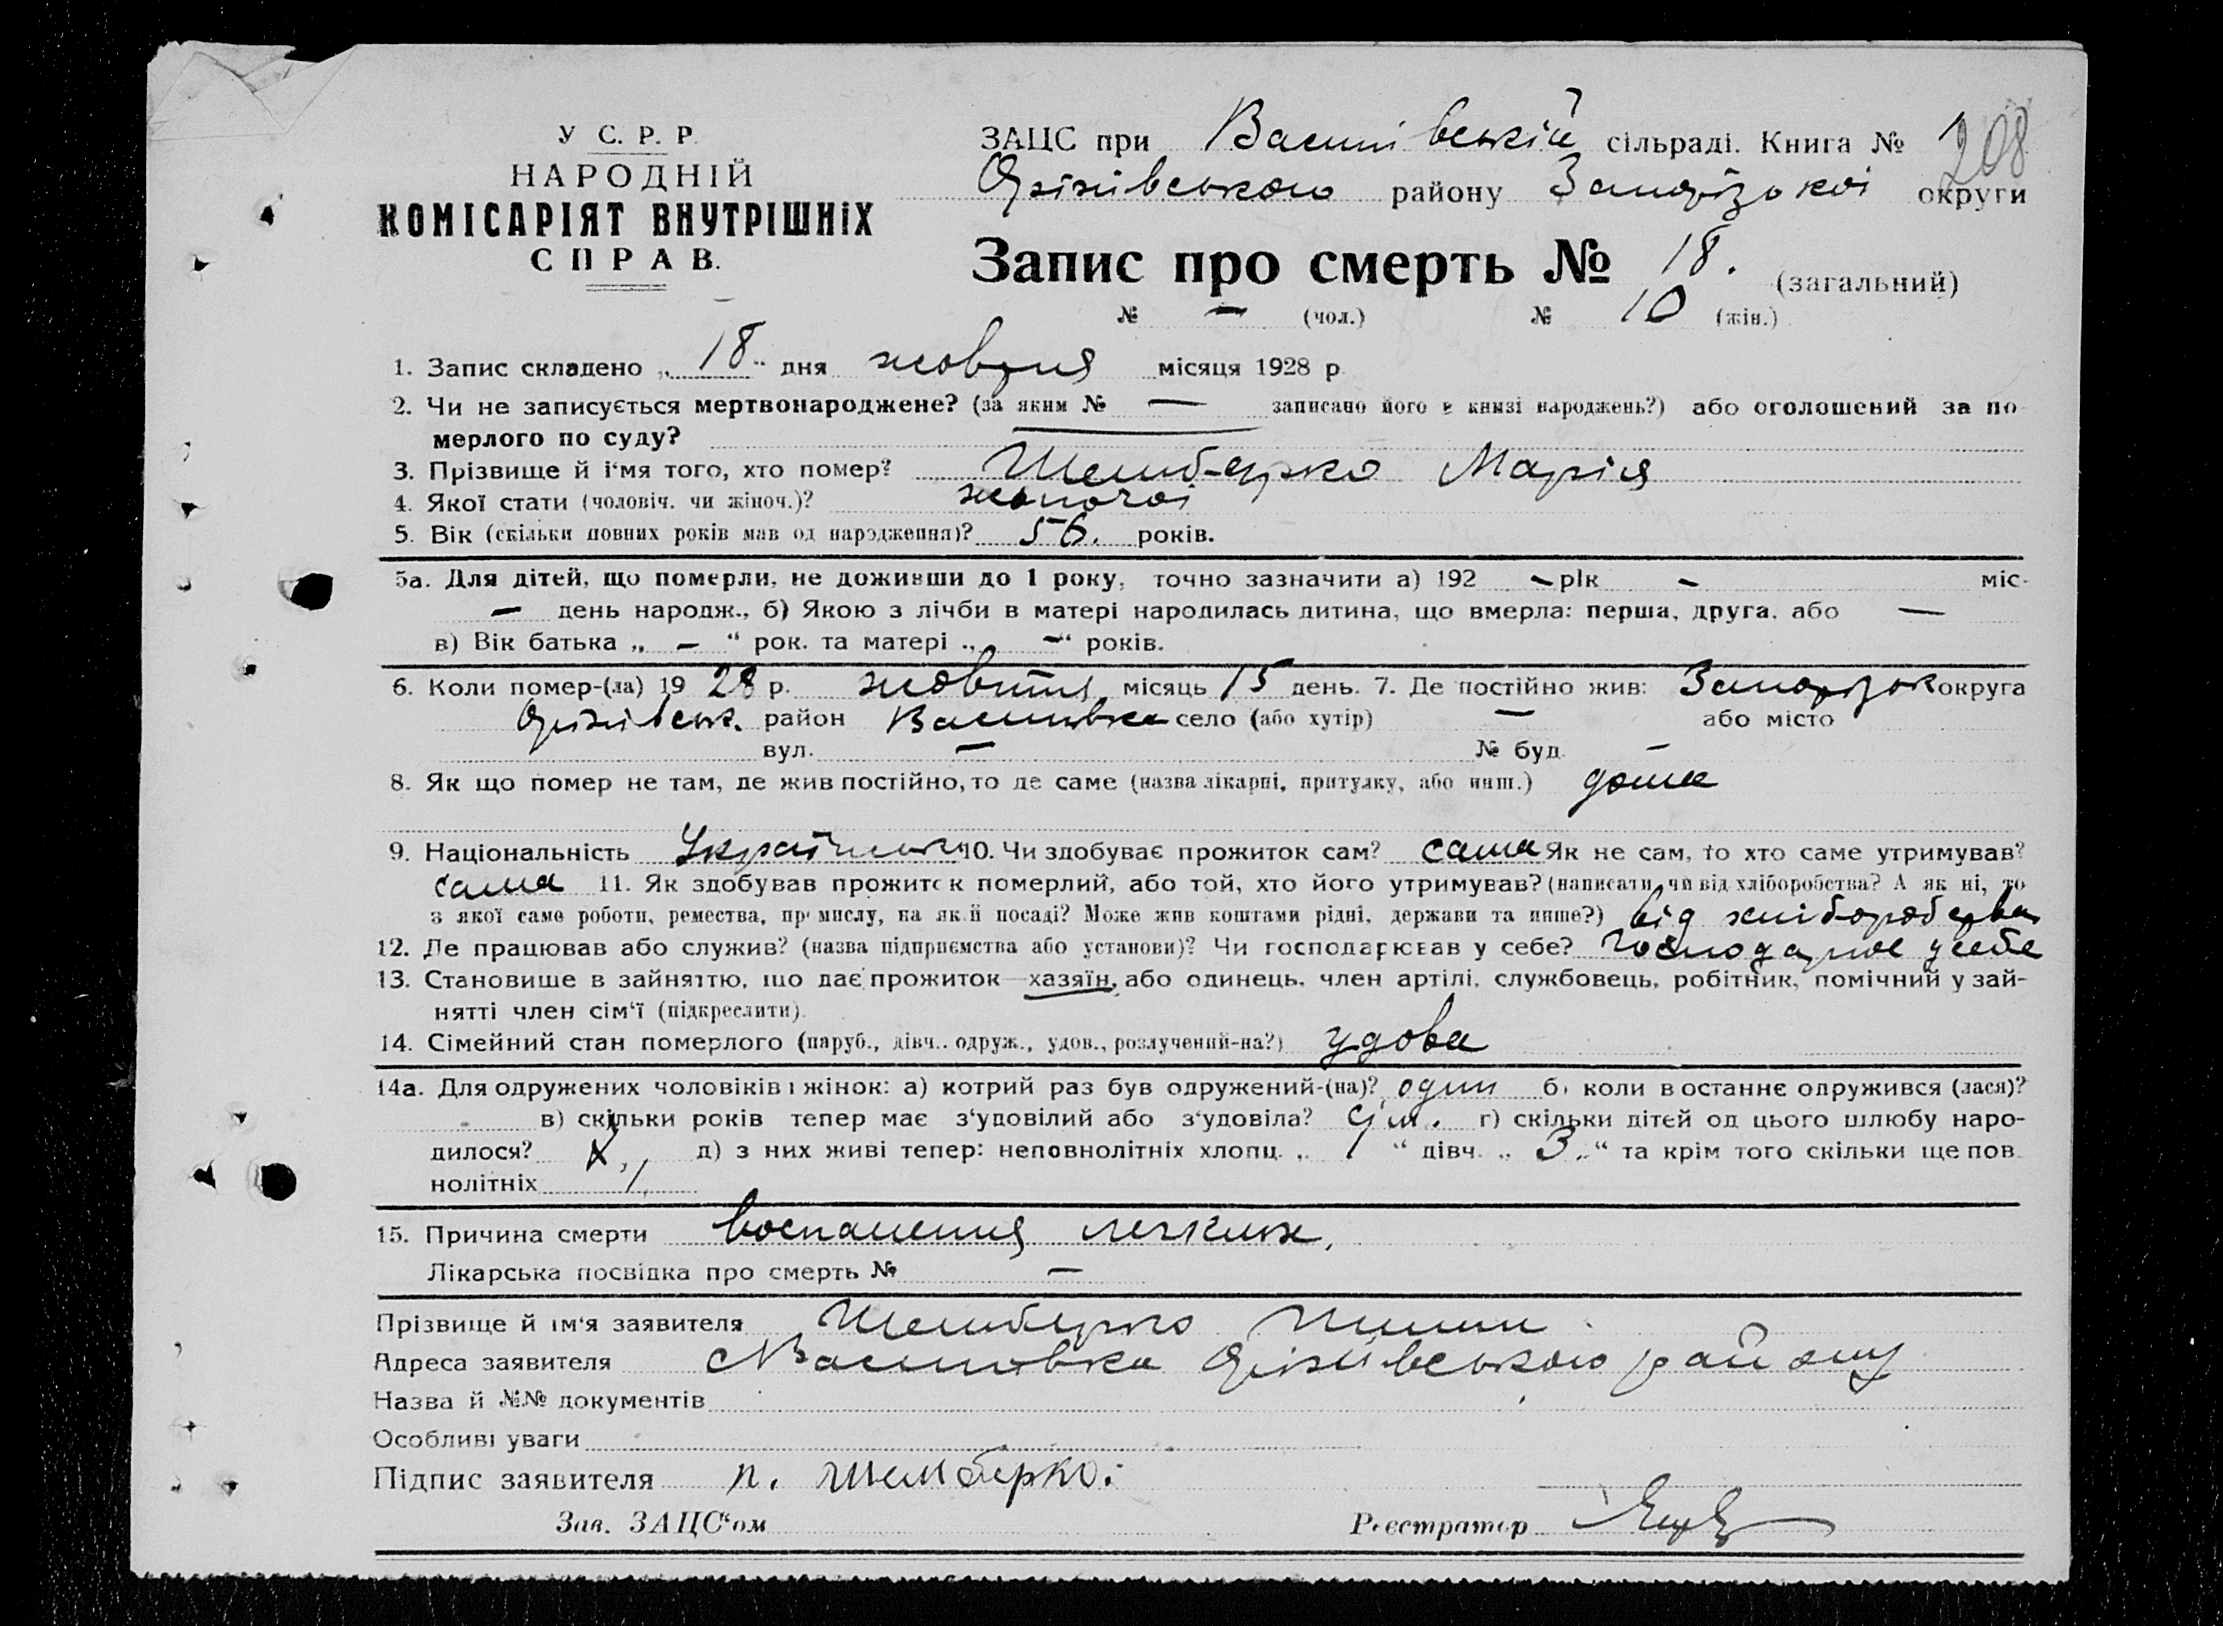 У С. Р. Р.
НАРОДНІЙ
КОМІСАРІЯТ ВНУТРІШНІХ
СПРАВ.
ЗАЦС при Василівській сільраді. Книга №
208
Оріхівського району Запорізької округи
Запис про смерть № 18. (загальний)
№ — (чол.) № 10 (жін.)
1. Запис складено „ 18 " дня жовтня місяця 1928 р
2. Чи не записується мертвонароджене? (за яким № — записано його в книзі народжень?) або оголошений за по
мерлого по суду?
3. Прізвище й ім'я того, хто помер? Шемберко Марія
4. Якої стати (чоловіч. чи жіноч.)? жіночої
5. Вік (скільки повних років мав од народження)? 56. років.
5а. Для дітей, що померли, не доживши до 1 року, точно зазначити а) 192 — рік — міс-
— день народж., б) Якою з лічби в матері народилась дитина, що вмерла: перша, друга, або —
в) Вік батька „ — “ рок. та матері „ — “ років.
6. Коли помер-(ла) 19 28 р. жовтня місяць 15 день. 7. Де постійно жив: Запорізьк округа
Оріхівськ. район Василівка село (або хутір) — або місто
вул. — № буд. —
8. Як що помер не там, де жив постійно, то де саме (назва лікарні, притулку, або инш.) дома
9. Національність Українка 10. Чи здобуває прожиток сам? сама Як не сам, то хто саме утримував?
сама 11. Як здобував прожиток померлий, або той, хто його утримував? (написати, чи від хліборобства? А як ні, то
з якої саме роботи, ремества, промислу, на якій посаді? Може жив коштами рідні, держави та инше?) від хліборобства
12. Де працював або служив? (назва підприємства або установи)? Чи господарював у себе? господарює у себе
13. Становище в зайняттю, що дає прожиток—хазяїн, або одинець, член артілі, службовець, робітник, помічний у зай-
нятті член сім‘ї (підкреслити).
14. Сімейний стан померлого (паруб., дівч., одруж., удов., розлучений-на?) удова
14а. Для одружених чоловіків і жінок: а) котрий раз був одружений-(на)? один б) коли востаннє одружився (лася)?
в) скільки років тепер має з‘удовілий або з‘удовіла? г) скільки дітей од цього шлюбу наро-
дилося? д) з них живі тепер: неповнолітніх хлопц. „ 1 “ дівч. „ 3 “ та крім того скільки ще пов
нолітніх
15. Причина смерти воспаления легких,
Лікарська посвідка про смерть № —
Прізвище й ім‘я заявителя Шемберко
Адреса заявителя с Василівка Оріхівського району
Назва й №№ документів
Особливі уваги
Підпис заявителя п. шемберко.
Зав. ЗАЦС‘ом Реєстратор